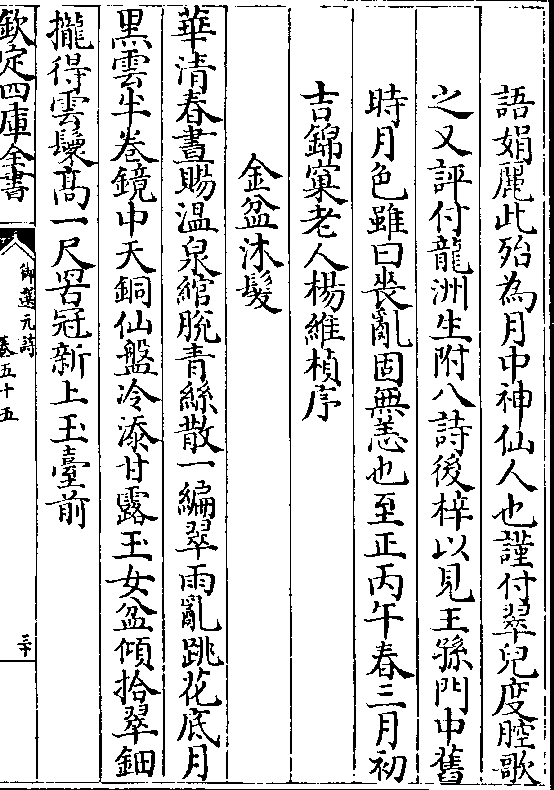 語娟麗此殆為月中神仙人也謹付翠兒度腔歌
之又評付龍洲生附八詩後梓以見王孫門中舊
時月色雖曰喪亂固無恙也至正丙午春三月初
吉錦窠老人楊維楨序
金盆沐髪
華清春晝賜温泉綰脱青絲散一編翠雨亂跳花底月
黒雲半卷鏡中天銅仙盤冷添甘露玉女盆傾拾翠鈿
攏得雲鬟髙一尺罟冠新上玉臺前
欽定四庫全書
御選元詩
卷五十五
二十